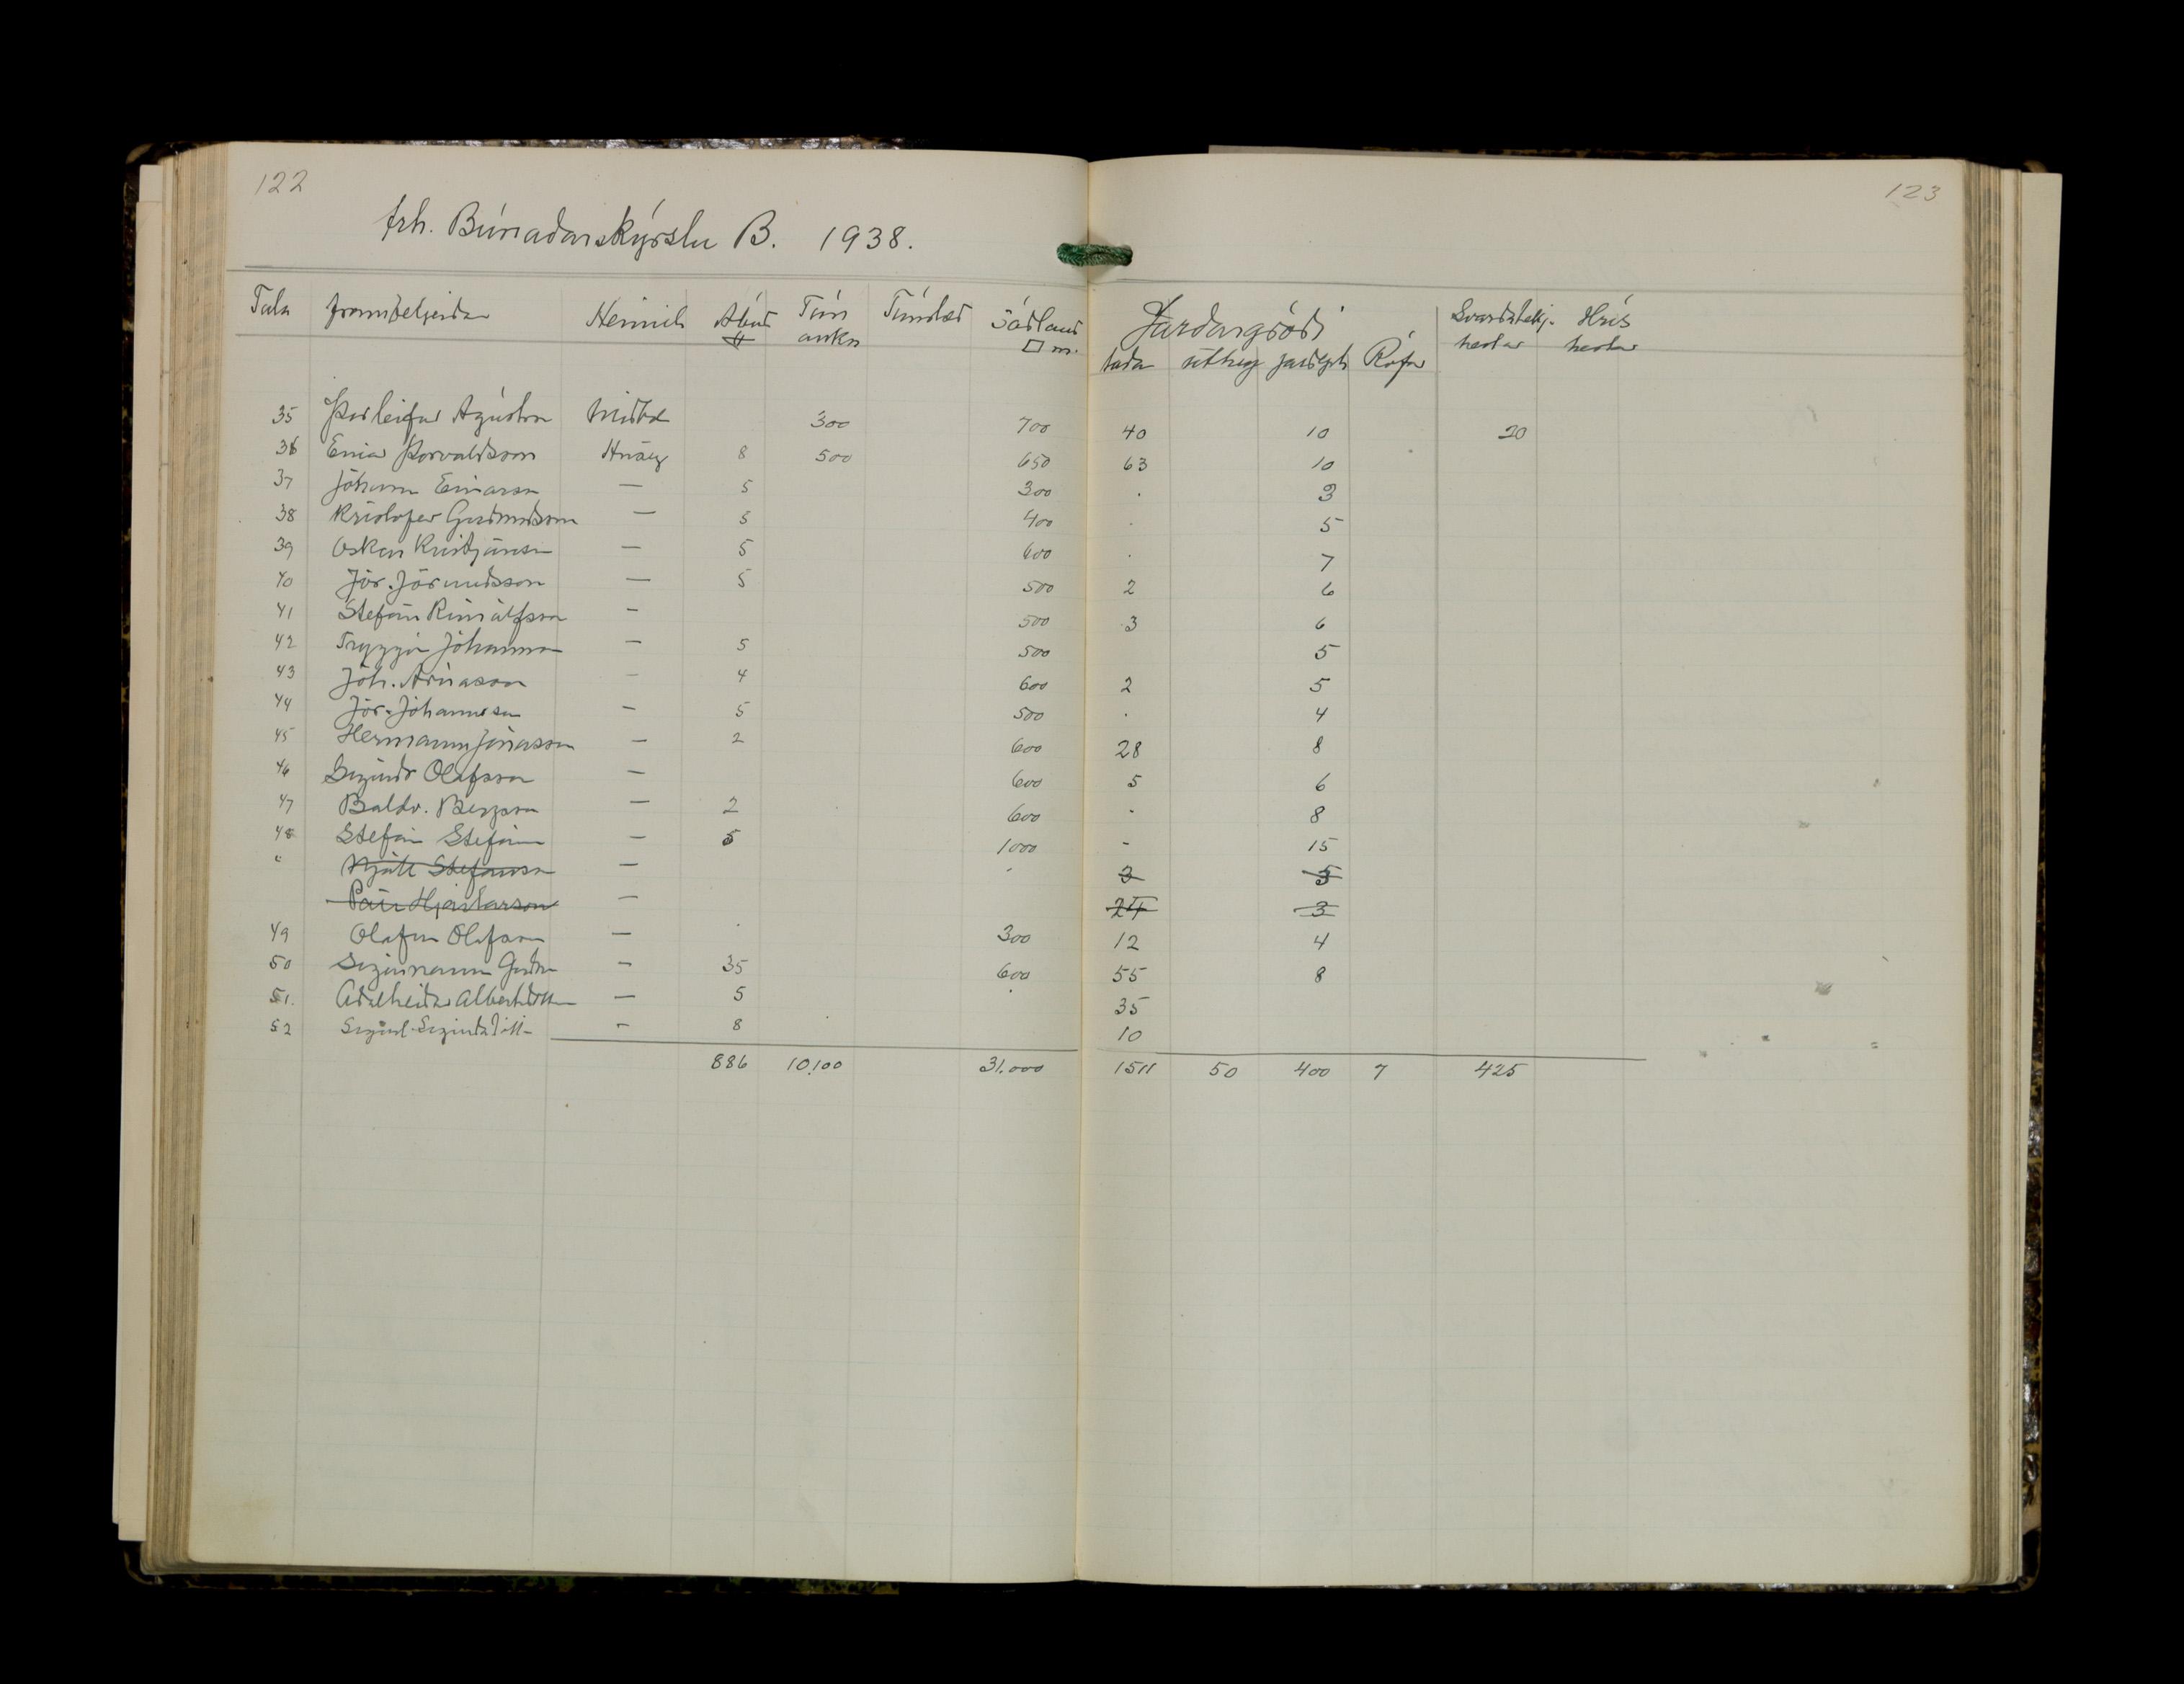 122
123
frh. Búnaðarskýrslu B. 1938.
Tala framteljendur Heimili Áburð Tún aukn Túnslétt Sáðland □ m. Jarðargróði taða úthey jarðepli Rófur Svarðartekj. hestar Hrís hestar
35 Þorleifur Ágústsson 300 700 40 10 20
36 Einar Þorvaldsson Hrísey 8 500 650 63 10
37 Jóhann Einarsson — 5 300 . 3
38 Kristofer Guðmundsson — 5 400 . 5
39 Oskar Kristjánsson — 5 600 . 7
40 Jör. Jörundsson — 5 500 2 6
41 Stefán Runólfsson — 500 3 6
42 Tryggvi Jóhannsson — 5 500 5
43 Jóh. Árnason — 4 600 2 5
44 Jör. Jóhannesson — 5 500 . 4
45 Hermann Jónasson — 2 600 28 8
46 Sigurður Olafsson — 600 5 6
47 Baldv. Bergsson — 2 600 - 8
48 Stefán Stefánsson — 5 1000 - 15
" Njáll Stefánsson — 3 5
Páll Hjartarson — 24 3
49 Olafur Olafsson — 300 12 4
50 Sigurmann — 35 600 55 8
51. Aðalheiður Albertsdóttir — 5 35
52 — 8 10
886 10.100 31.000 1511 50 400 7 425